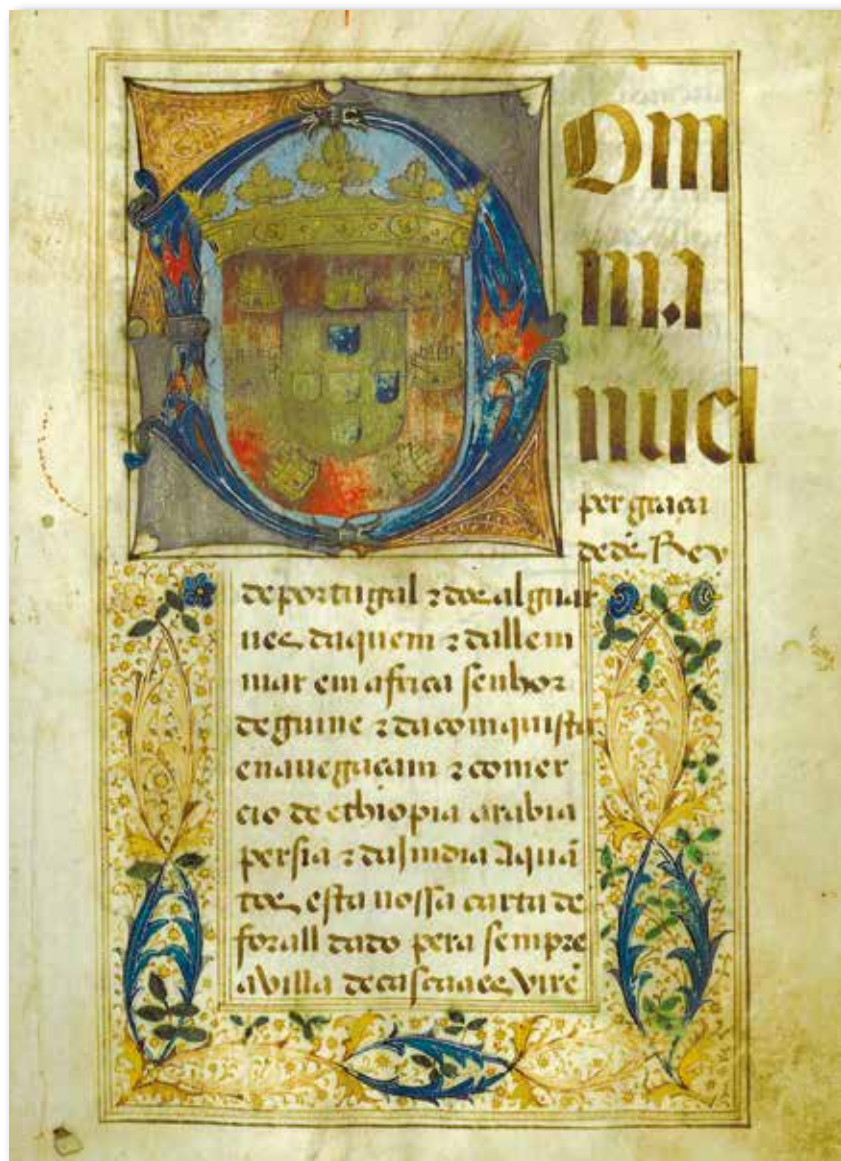 Dom
ma
nuel
per graça
de ds Rey
de portugal ⁊ dos algar
ues daquem ⁊ dallem
mar em africa senhor
de guine ⁊ da comquista
e nauegaçam ⁊ comer
cio de ethiopia arabia
persia ⁊ da Jmdia A quã
tos esta nossa carta de
forall dado pera sempre
a villa de cascaaes virẽ